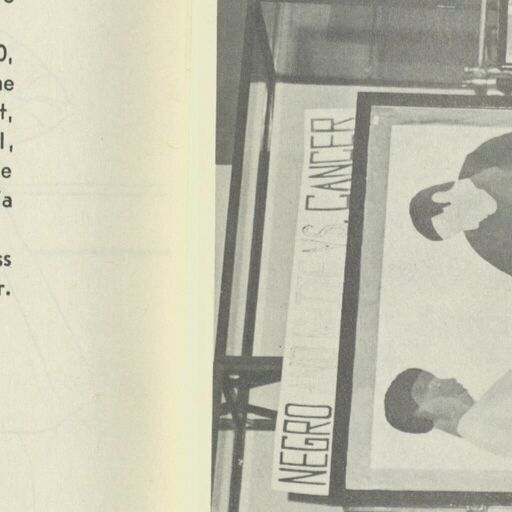 0,
ne
t,
l,
e
a
ss
r.
NEGRO VS. CANCER